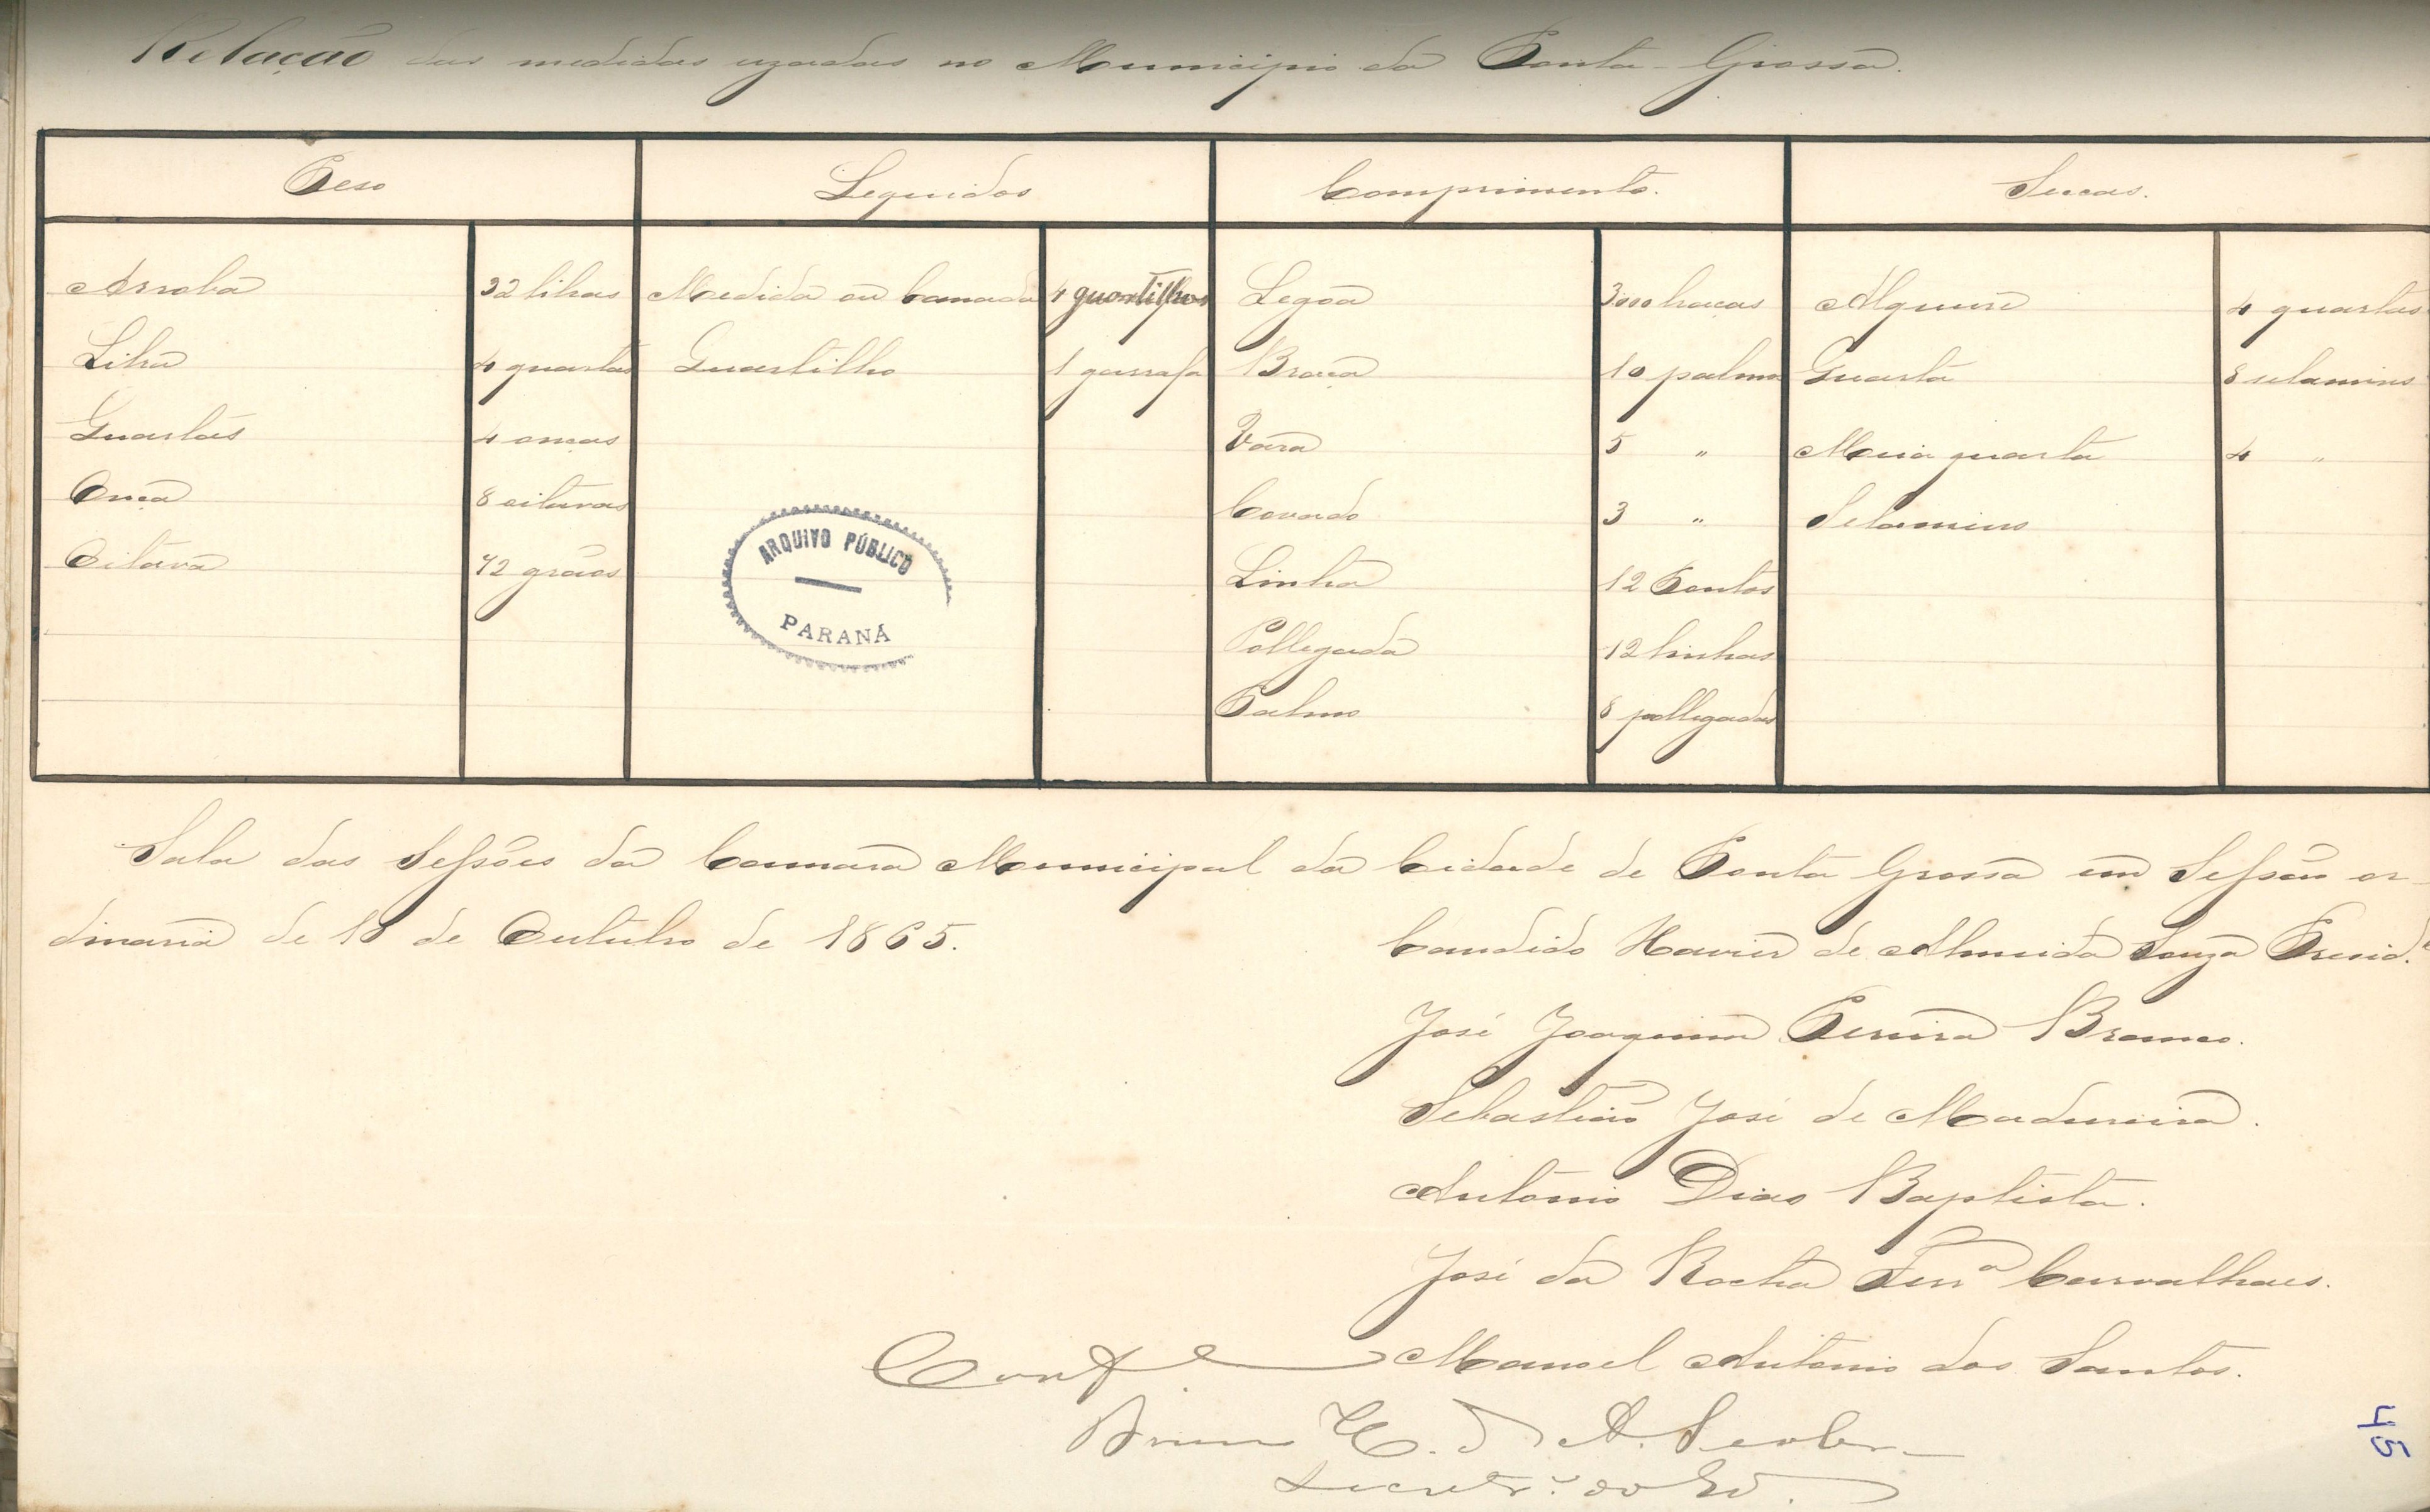 Relação das medidas uzadas no Municipio da Ponta-Grossa.
Peso Lequidos Comprimento. Seccas.
Arroba 32 libras Medida ou Canada 4 quartilhos Legoa 3000 braças Alqueire 4 quartas
Libra 4 quartas Quartilho 1 garrafa Braça 10 palmos Quarta 8 selamins
Quartas 4 onças Vara 5 " Meia quarta 4 "
Onça 8 oitavas Covado 3 " Selamins
Oitava 72 grãos Linha 12 Pontos
Pollegada 12 linhas
Palmo 8 pollegadas
ARQUIVO PÚBLICO
PARANÁ
Sala das Sessões da Camara Municipal da Cidade de Ponta Grossa em Sessão or-
dinaria de 18 de Outubro de 1865.
Candido Xavier de Almeida Souza Presid.e
José Joaquim Pereira Branco.
Sebastião José de Madureira.
Antonio Dias Baptista.
José da Rocha Ferr.a Carvalhaes.
Manoel Antonio dos Santos.
Conf.e
45